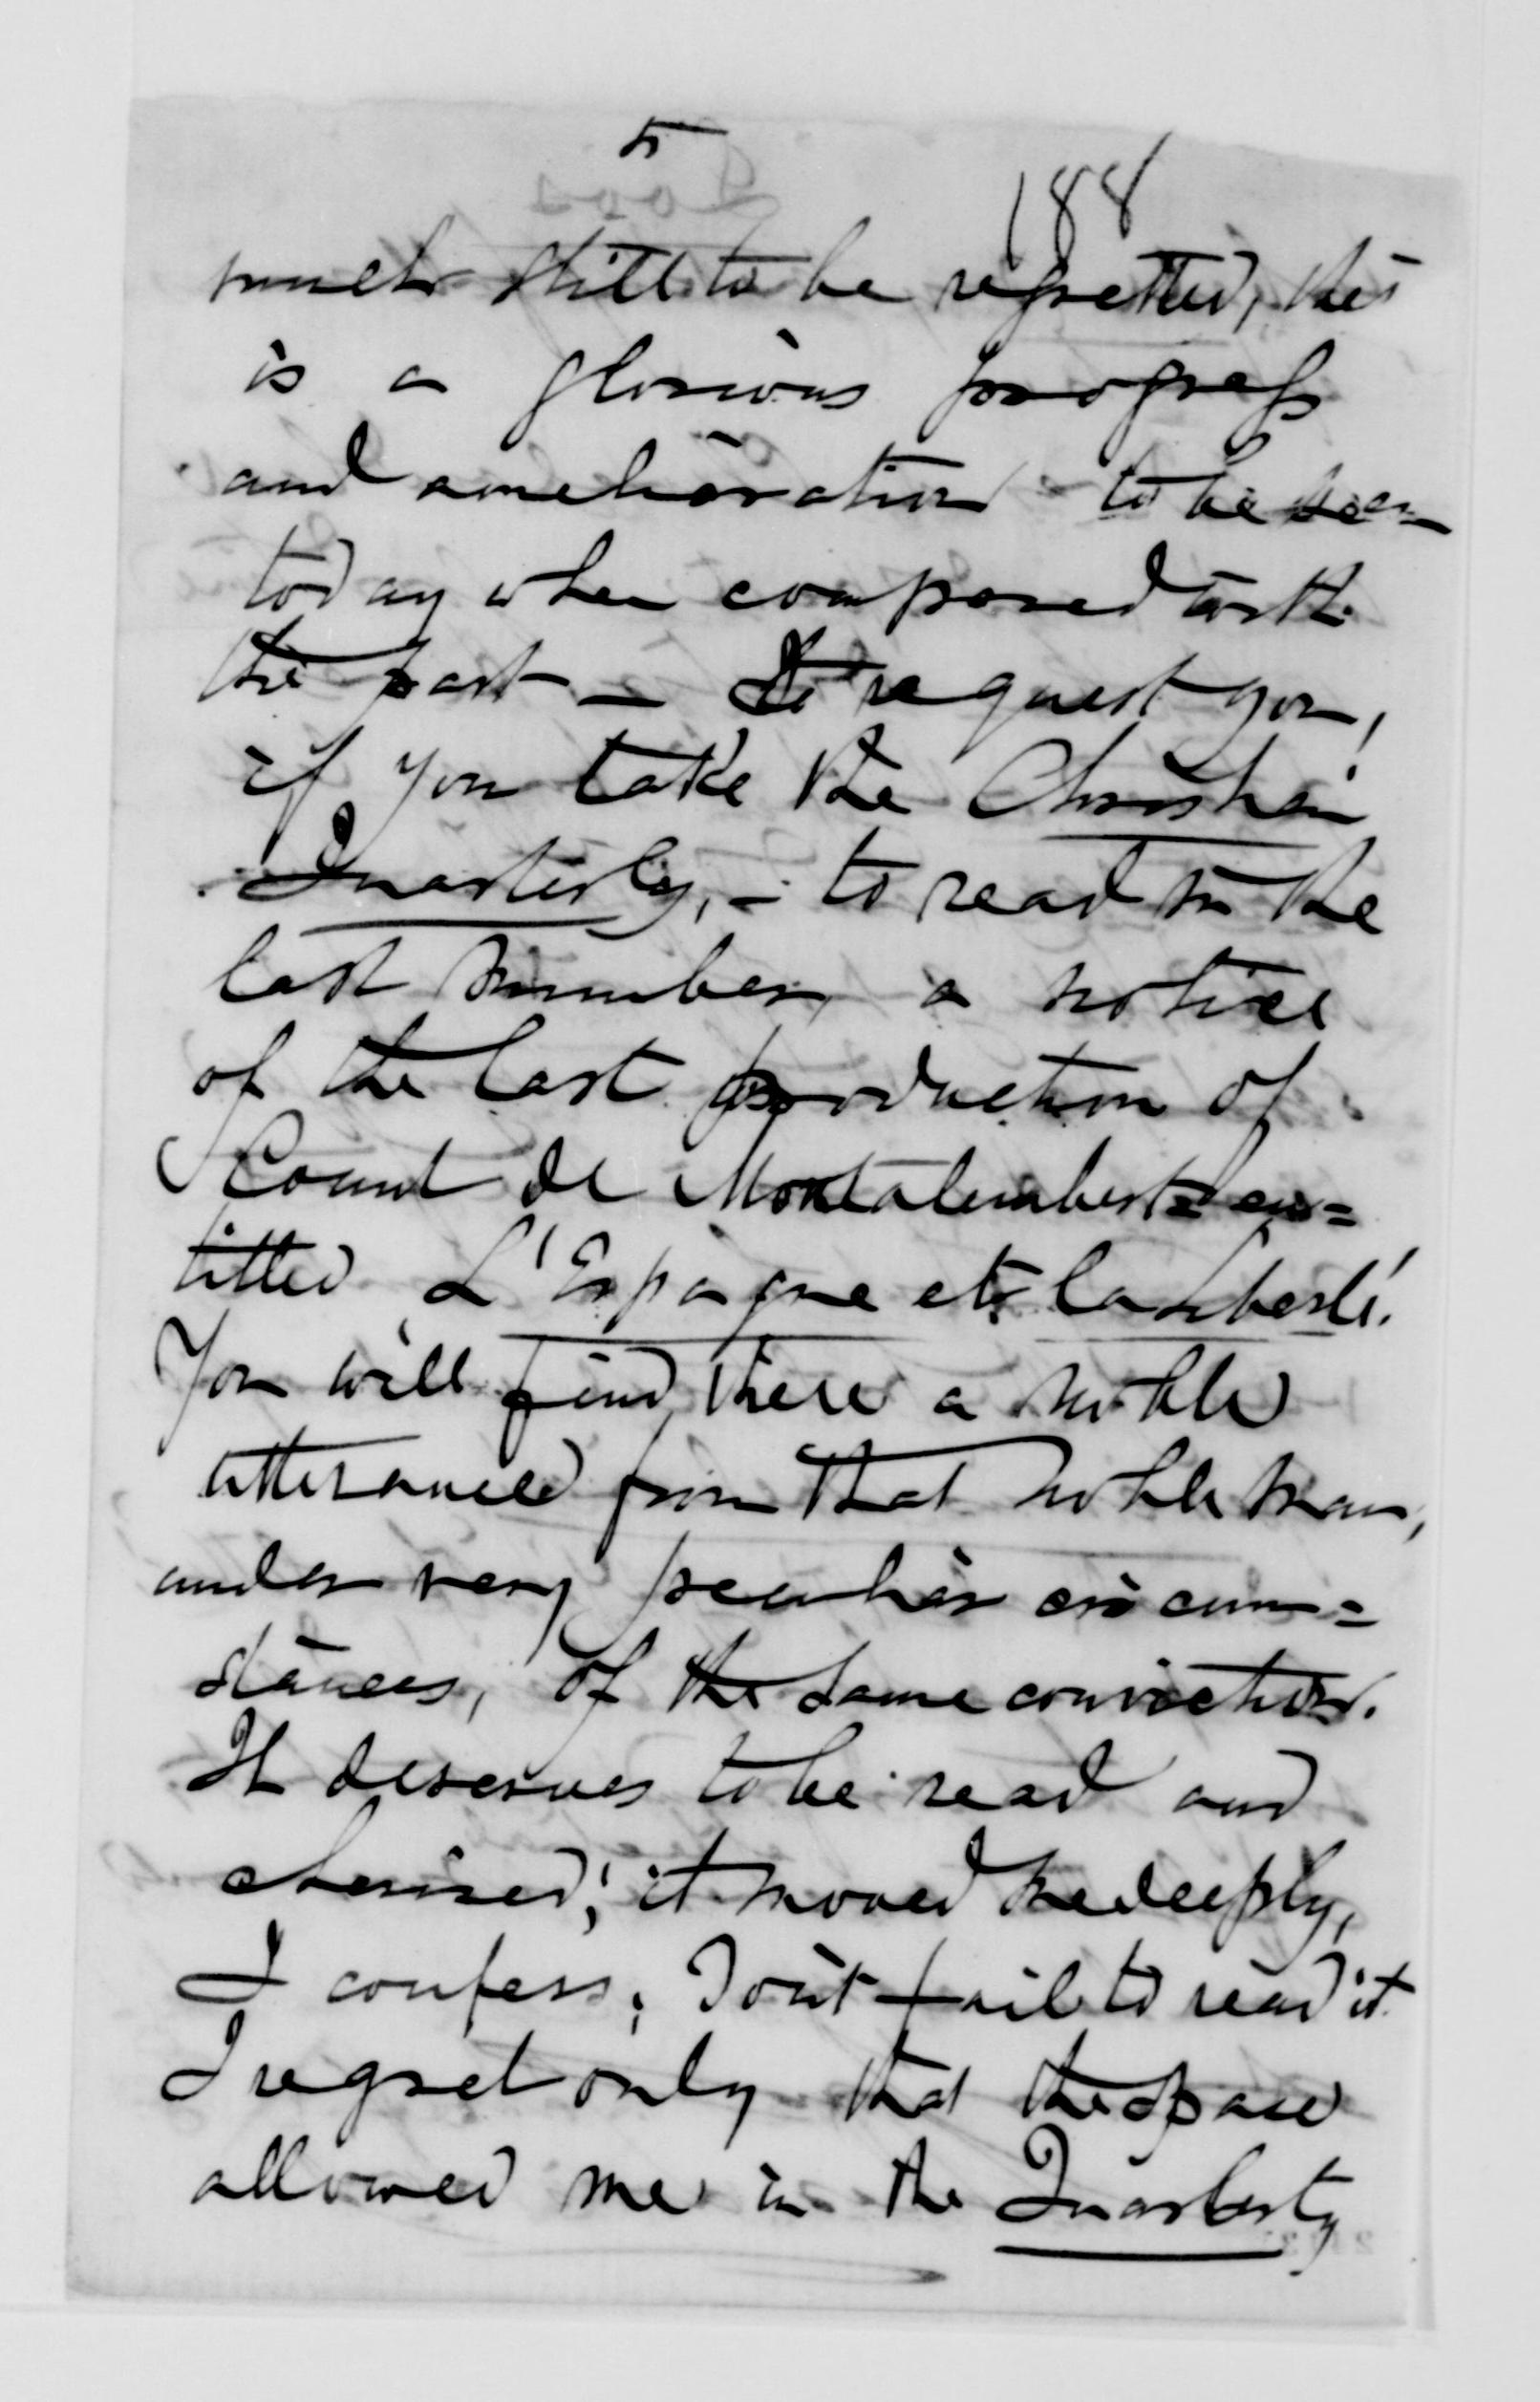 5
188
much still to be regretted, this
is a glorious progress
and amelioration to be seen
today when compared with
the past — I request you,
if you take the Christian
Quarterly, – to read in the
last number, a notice
of the last production of
Count de Montalembert en=
titled L'Espagne et la Liberté.
You will find there a noble
utterance from that noble man,
under very peculiar circum=
stances, of the same conviction.
It deserves to be read and
cherised; it moved me deeply,
I confess; Don't fail to read it
I regret only that the space
allowed me in the Quarterly